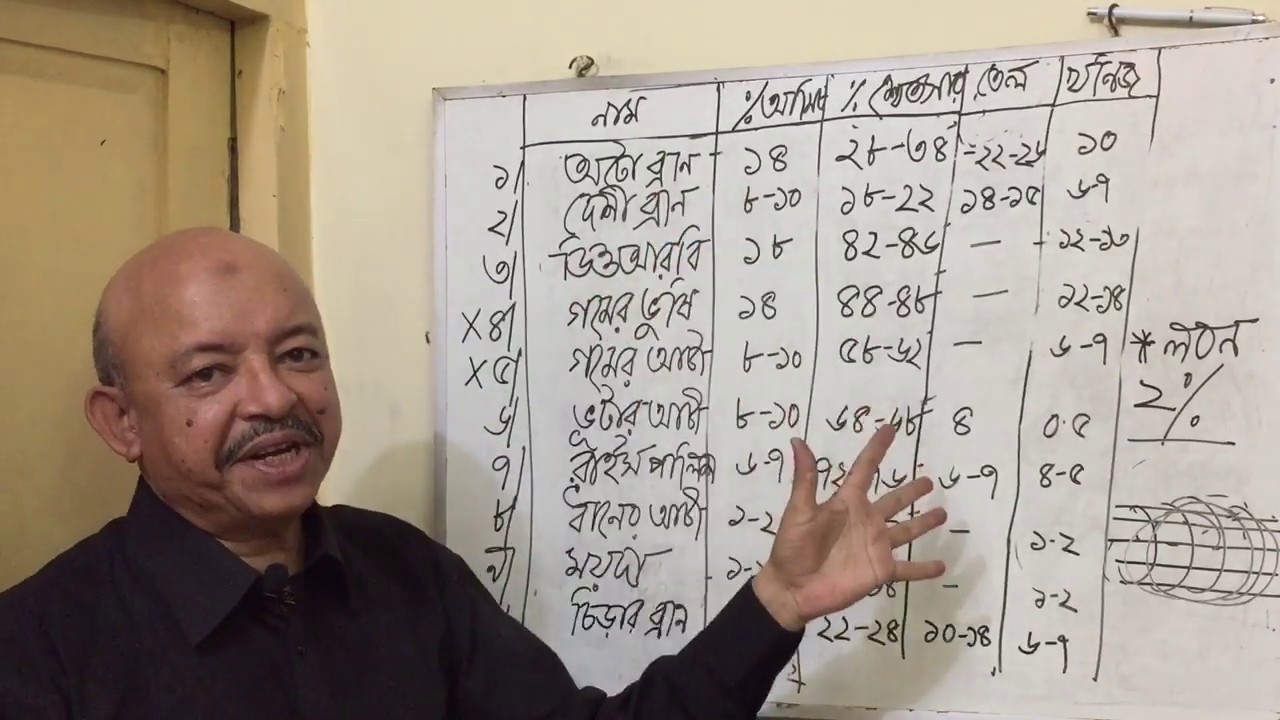 নাম %আমিষ %শ্বেতসার তেল খনিজ
১। অটো ব্রান ১৪ ২৮-৩৪ ২২-২৬ ১০
২। দেশী ব্রান ৮-১০ ১৮-২২ ১৪-১৫ ৬-৭
৩। ডিওআরবি ১৮ ৪২-৪৬ — ১২-১৩
X ৪। গমের ভুষি ১৪ ৪৪-৪৮ — ১২-১৪
X ৫। গমের আটা ৮-১০ ৫৮-৬২ — ৬-৭
৬। ভূট্টার আটা ৮-১০ ৬৪-৬৮ ৪ ০.৫
৭। রাইস পালিশ ৬-৭ ৬-৭ ৪-৫
৮। ধানের আটা ১-২ — ১-২
৯। ময়দা — ১-২
চিড়ার ব্রান ২২-২৪ ১০-১৪ ৬-৭
* লবন
2%